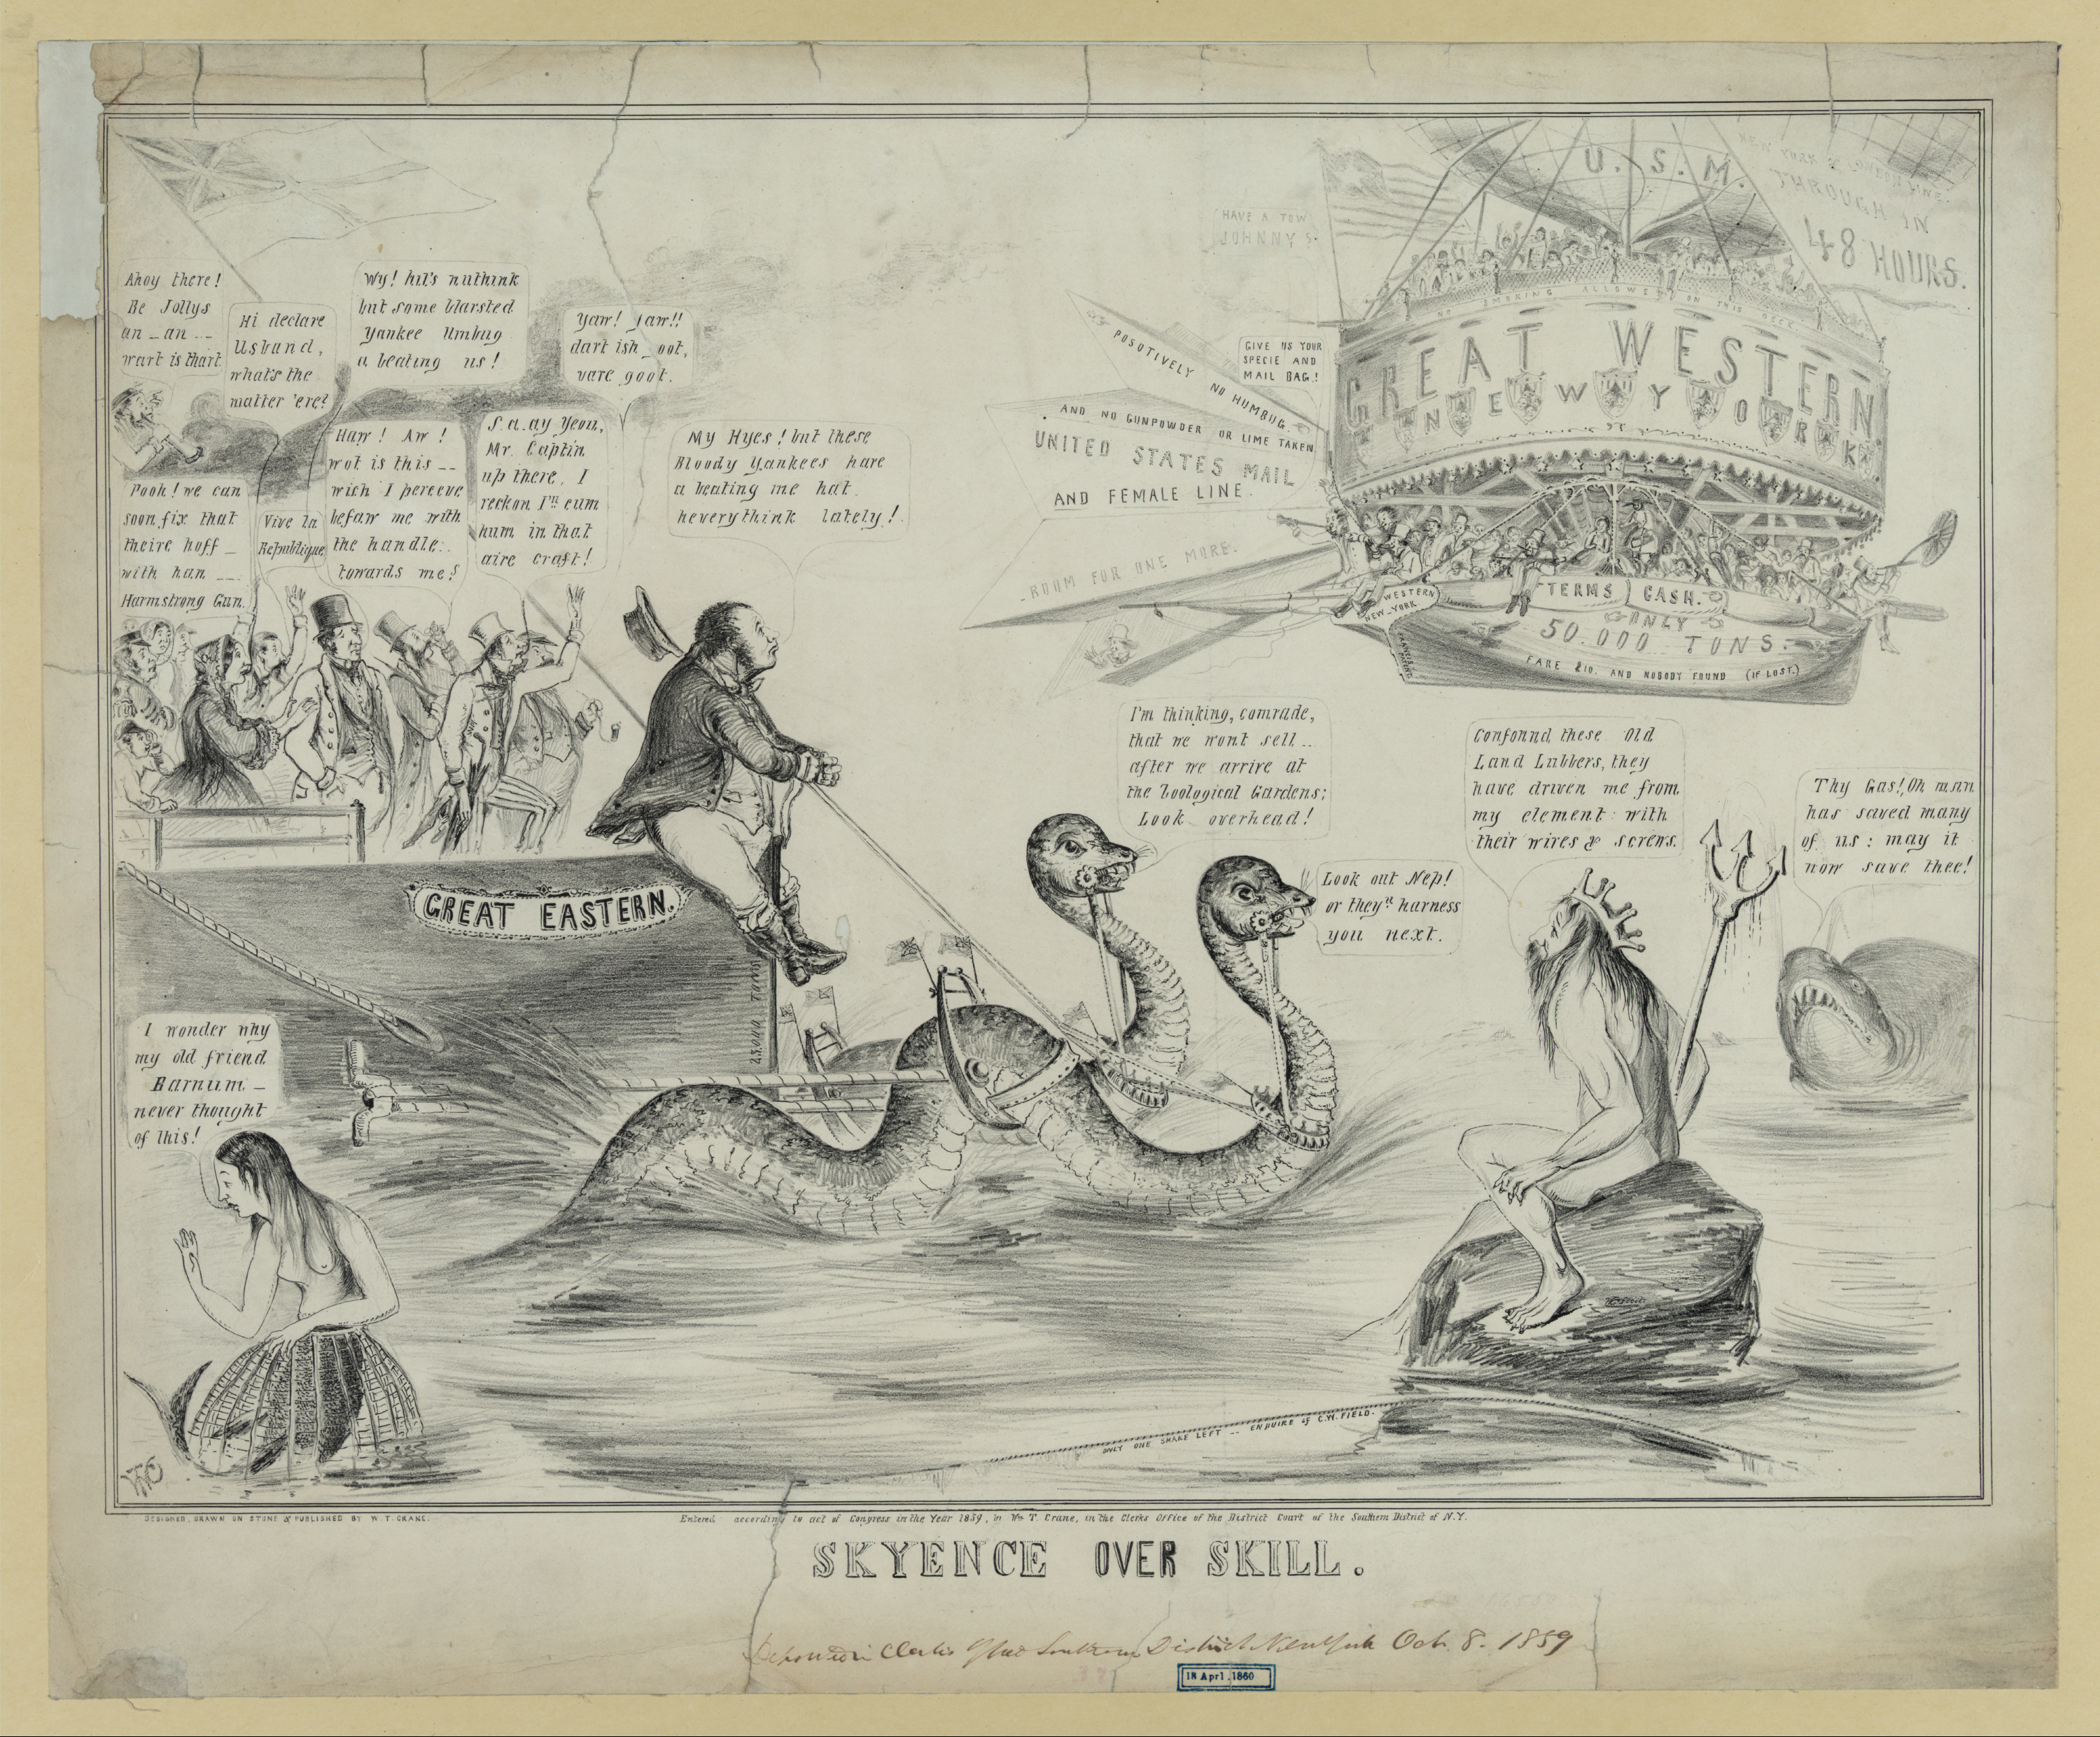 U. S. M.
NEW YORK & LONDON LINE.
THROUGH IN
48 HOURS.
HAVE A TOW
JOHNNY?
Ahoy there!
Be Jollys
an _ an _ _
wart is thart
Hi declare
Usband,
what's the
matter 'ere?
Wy! hit's nuthink
but some blarsted
Yankee Umbug
a beating us!
Yaw! Jaw!!
dart ish _ oot,
vare goot.
Pooh! we can
soon fix that
theire hoff _
with han _ _
Harmstrong Gun.
Vive la
Republique
Haw! Aw!
wot is this _ _
wich I perceve
befaw me with
the handle
towards me?
S.a.ay Yeou,
Mr. Captin
up there, I
reckon I'll cum
hum in that
aire craft!
My Hyes! but these
Bloody Yankees hare
a beating me hat
heverythink lately!
POSOTIVELY NO HUMBUG.
GIVE US YOUR
SPECIE AND
MAIL BAG!
AND NO GUNPOWDER OR LIME TAKEN
UNITED STATES MAIL
AND FEMALE LINE.
ROOM FOR ONE MORE.
NO SMOKING ALLOWED ON THIS DECK.
GREAT WESTERN
NEW YORK
WESTERN
NEW-YORK
TERMS CASH.
ONLY
50.000 TONS.
FARE £10. AND NOBODY FOUND (IF LOST.)
I'm thinking, comrade,
that we wont sell _ _
after we arrive at
the Zoological Gardens;
Look overhead!
Look out Nep!
or they'll harness
you next.
Confound these Old
Land Lubbers, they
have driven me from
my element with
their wires & screws.
Thy Gas! Oh man
has saved many
of us: may it
now save thee!
GREAT EASTERN.
25.000 TONS
I wonder why
my old friend
Barnum _
never thought
of this!
ONLY ONE SHARE LEFT -- ENQUIRE of C.W. FIELD.
DESIGNED, DRAWN ON STONE & PUBLISHED BY W. T. CRANE.
Entered according to act of Congress in the Year 1859, by Wm T. Crane, in the Clerks Office of the District Court of the Southern District of N.Y.
SKYENCE OVER SKILL.
Southern District New York Oct. 8. 1859
18 Apr1.1860